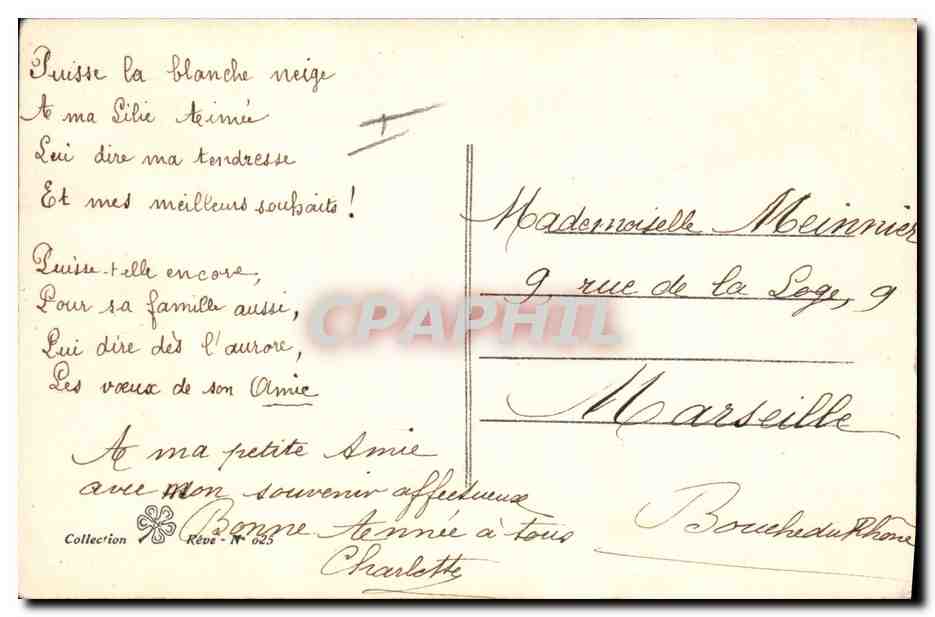 Puisse la blanche neige
A ma Lilie Aimée
Lui dire ma tendresse
Et mes meilleurs souhaits !
Puisse-t-elle encore,
Pour sa famille aussi,
Lui dire dès l'aurore,
Les vœux de son Amie
A ma petite Amie
avec mon souvenir affectueux
Bonne Année à tous
Charlotte
Collection Rêve - N° 625
Mademoiselle Meinnier
9 rue de la Loge, 9
Marseille
Bouche du Rhône
CPAPHIL